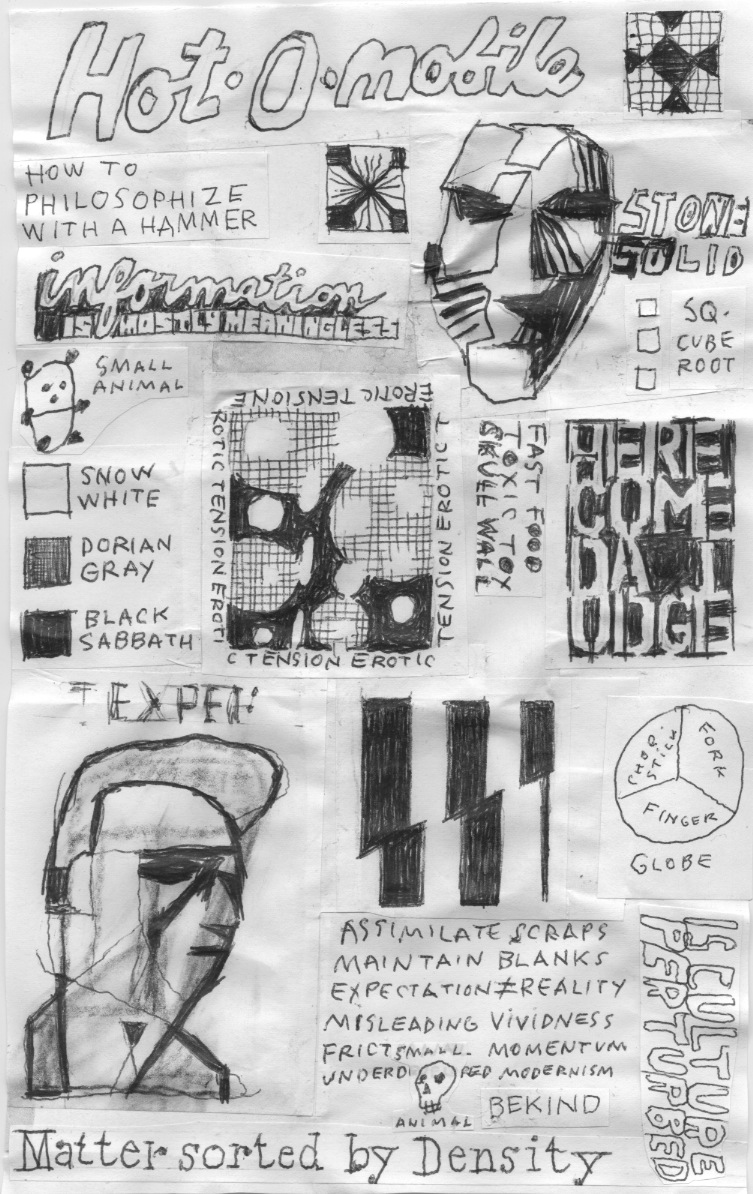 Hot·O·mobile
HOW TO
PHILOSOPHIZE
WITH A HAMMER
STONE
SOLID
information
IS MOSTLY MEANINGLESS
SQ.
CUBE
ROOT
SMALL
ANIMAL
EROTIC TENSIONE
ROTIC TENSION EROTI
TENSION EROTIC T
C TENSION EROTIC
SNOW
WHITE
DORIAN
GRAY
BLACK
SABBATH
FAST FOOD
TOXIC TOY
SKULL WALL
HERE
COME
DA J
UDGE
CHOP.
STICK
FORK
FINGER
GLOBE
ASSIMILATE SCRAPS
MAINTAIN BLANKS
EXPECTATION≠REALITY
MISLEADING VIVIDNESS
FRICT SMALL. MOMENTUM
UNDERDI PED MODERNISM
ANIMAL
BEKIND
IS CULTURE
PERTURBED
Matter sorted by Density